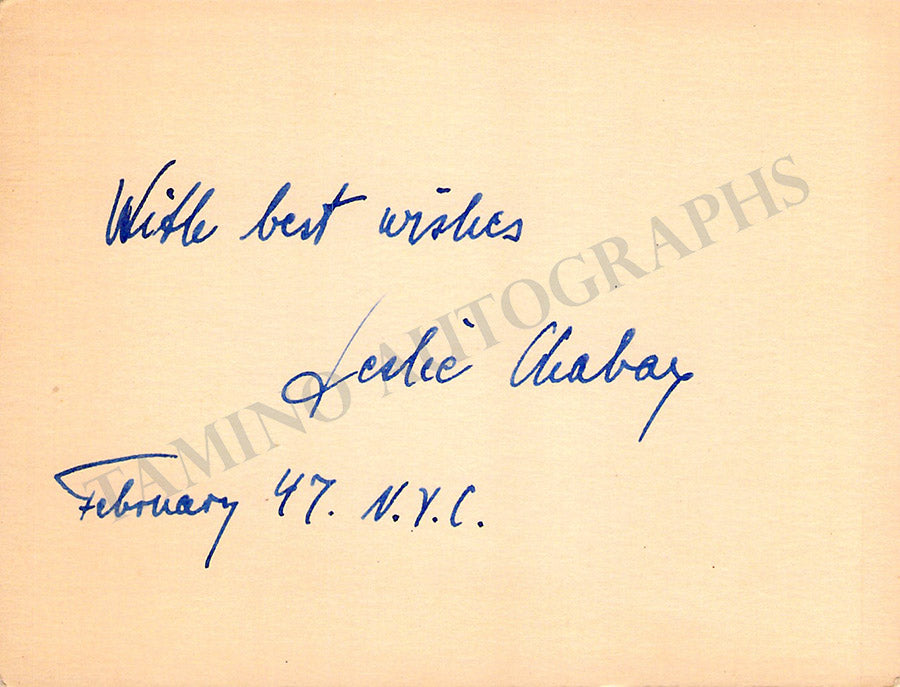 With best wishes
Leslie Chabay
February 47. N.Y.C.
TAMINO AUTOGRAPHS